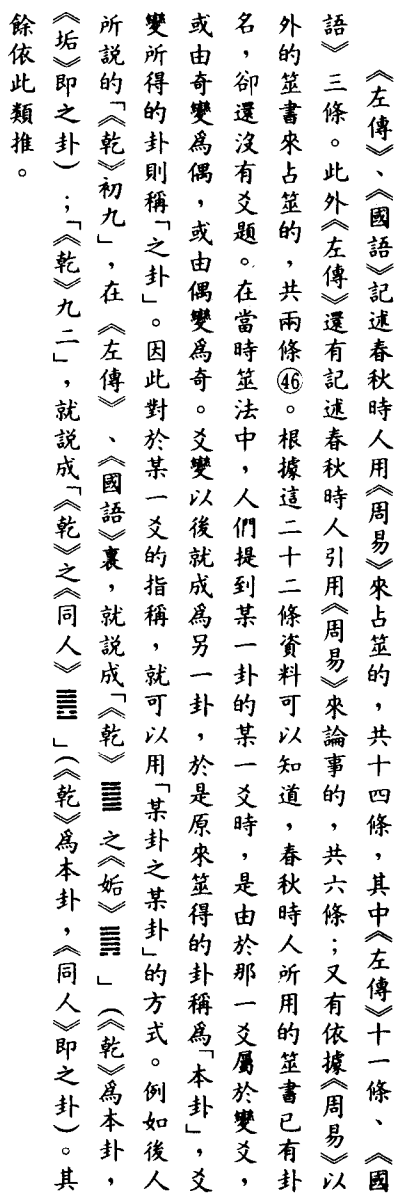 《左傳》、《國語》記述春秋時人用《周易》來占筮的，共十四條，其中《左傳》十一條、《國
語》三條。此外《左傳》還有記述春秋時人引用《周易》來論事的，共六條；又有依據《周易》以
外的筮書來占筮的，共兩條㊻。根據這二十二條資料可以知道，春秋時人所用的筮書已有卦
名，卻還沒有爻題。在當時筮法中，人們提到某一卦的某一爻時，是由於那一爻屬於變爻，
或由奇變爲偶，或由偶變爲奇。爻變以後就成爲另一卦，於是原來筮得的卦稱爲「本卦」，爻
變所得的卦則稱「之卦」。因此對於某一爻的指稱，就可以用「某卦之某卦」的方式。例如後人
所説的「《乾》初九」，在《左傳》、《國語》裏，就説成「《乾》䷀之《姤》䷫」（《乾》爲本卦，
《垢》即之卦）；「《乾》九二」，就説成「《乾》之《同人》䷌」（《乾》爲本卦，《同人》即之卦）。其
餘依此類推。